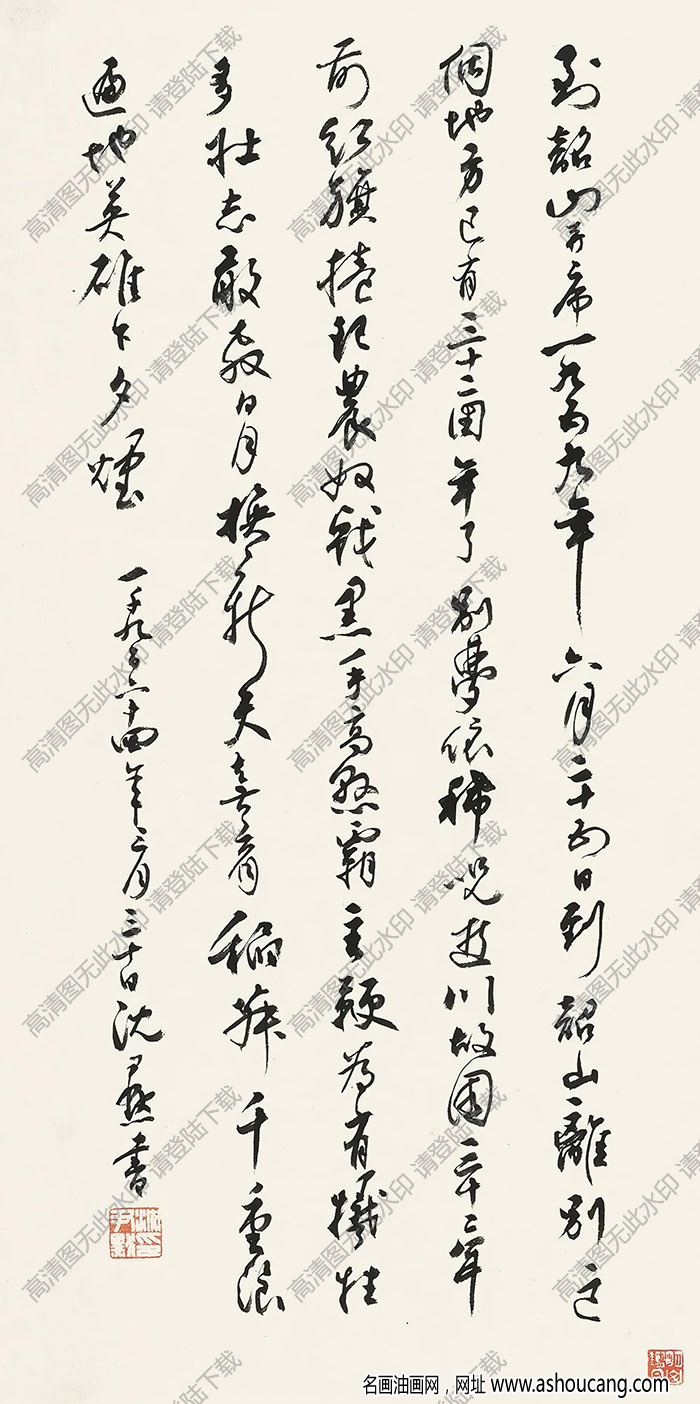 到韶山并序一九五九年六月二十五日到韶山離別这
個地方已有三十二周年了别夢依稀咒逝川故園三十二年
前紅旗捲起農奴戟黑手高懸霸主鞭為有犧牲
多壯志敢教日月換新天喜看稻菽千重浪
遍地英雄下夕煙
一千九百六十四年三月三十日沈尹默書
高清图无此水印 请登陆下载
名画油画网，网址 www.ashoucang.com